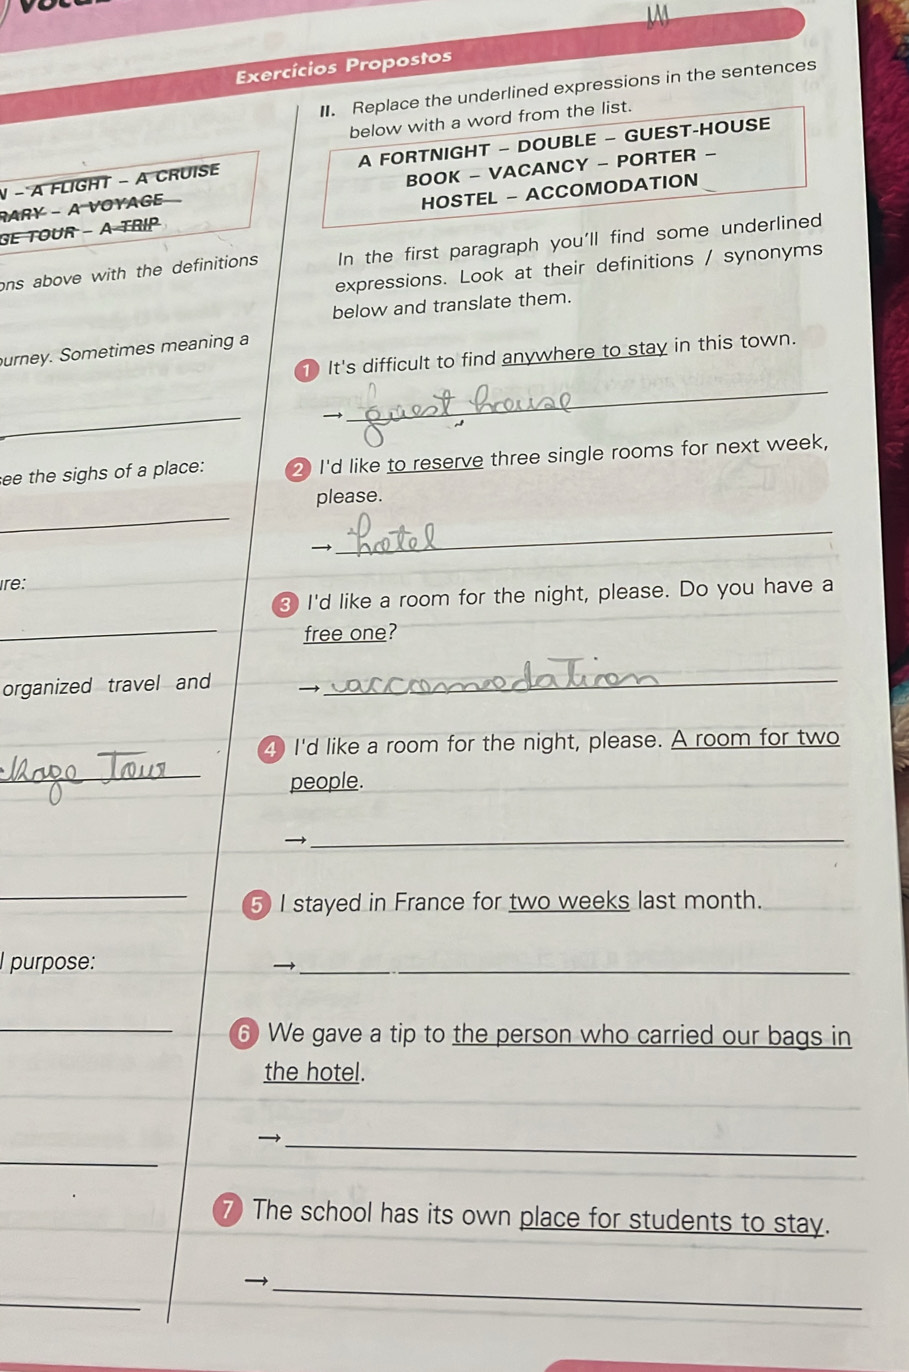 Exercícios Propostos
- A FLIGHT - A CRUISE
RARY - A VOYAGE
GE TOUR - A TRIP
ons above with the definitions
ourney. Sometimes meaning a
see the sighs of a place:
ure:
organized travel and
ckage Tour
l purpose:
II. Replace the underlined expressions in the sentences
below with a word from the list.
A FORTNIGHT - DOUBLE - GUEST-HOUSE
BOOK - VACANCY - PORTER -
HOSTEL - ACCOMODATION
In the first paragraph you'll find some underlined
expressions. Look at their definitions / synonyms
below and translate them.
1 It's difficult to find anywhere to stay in this town.
→ guest house
2 I'd like to reserve three single rooms for next week,
please.
→ hotel
3 I'd like a room for the night, please. Do you have a
free one?
→ accomodation
4 I'd like a room for the night, please. A room for two
people.
→
5 I stayed in France for two weeks last month.
→
6 We gave a tip to the person who carried our bags in
the hotel.
→
7 The school has its own place for students to stay.
→